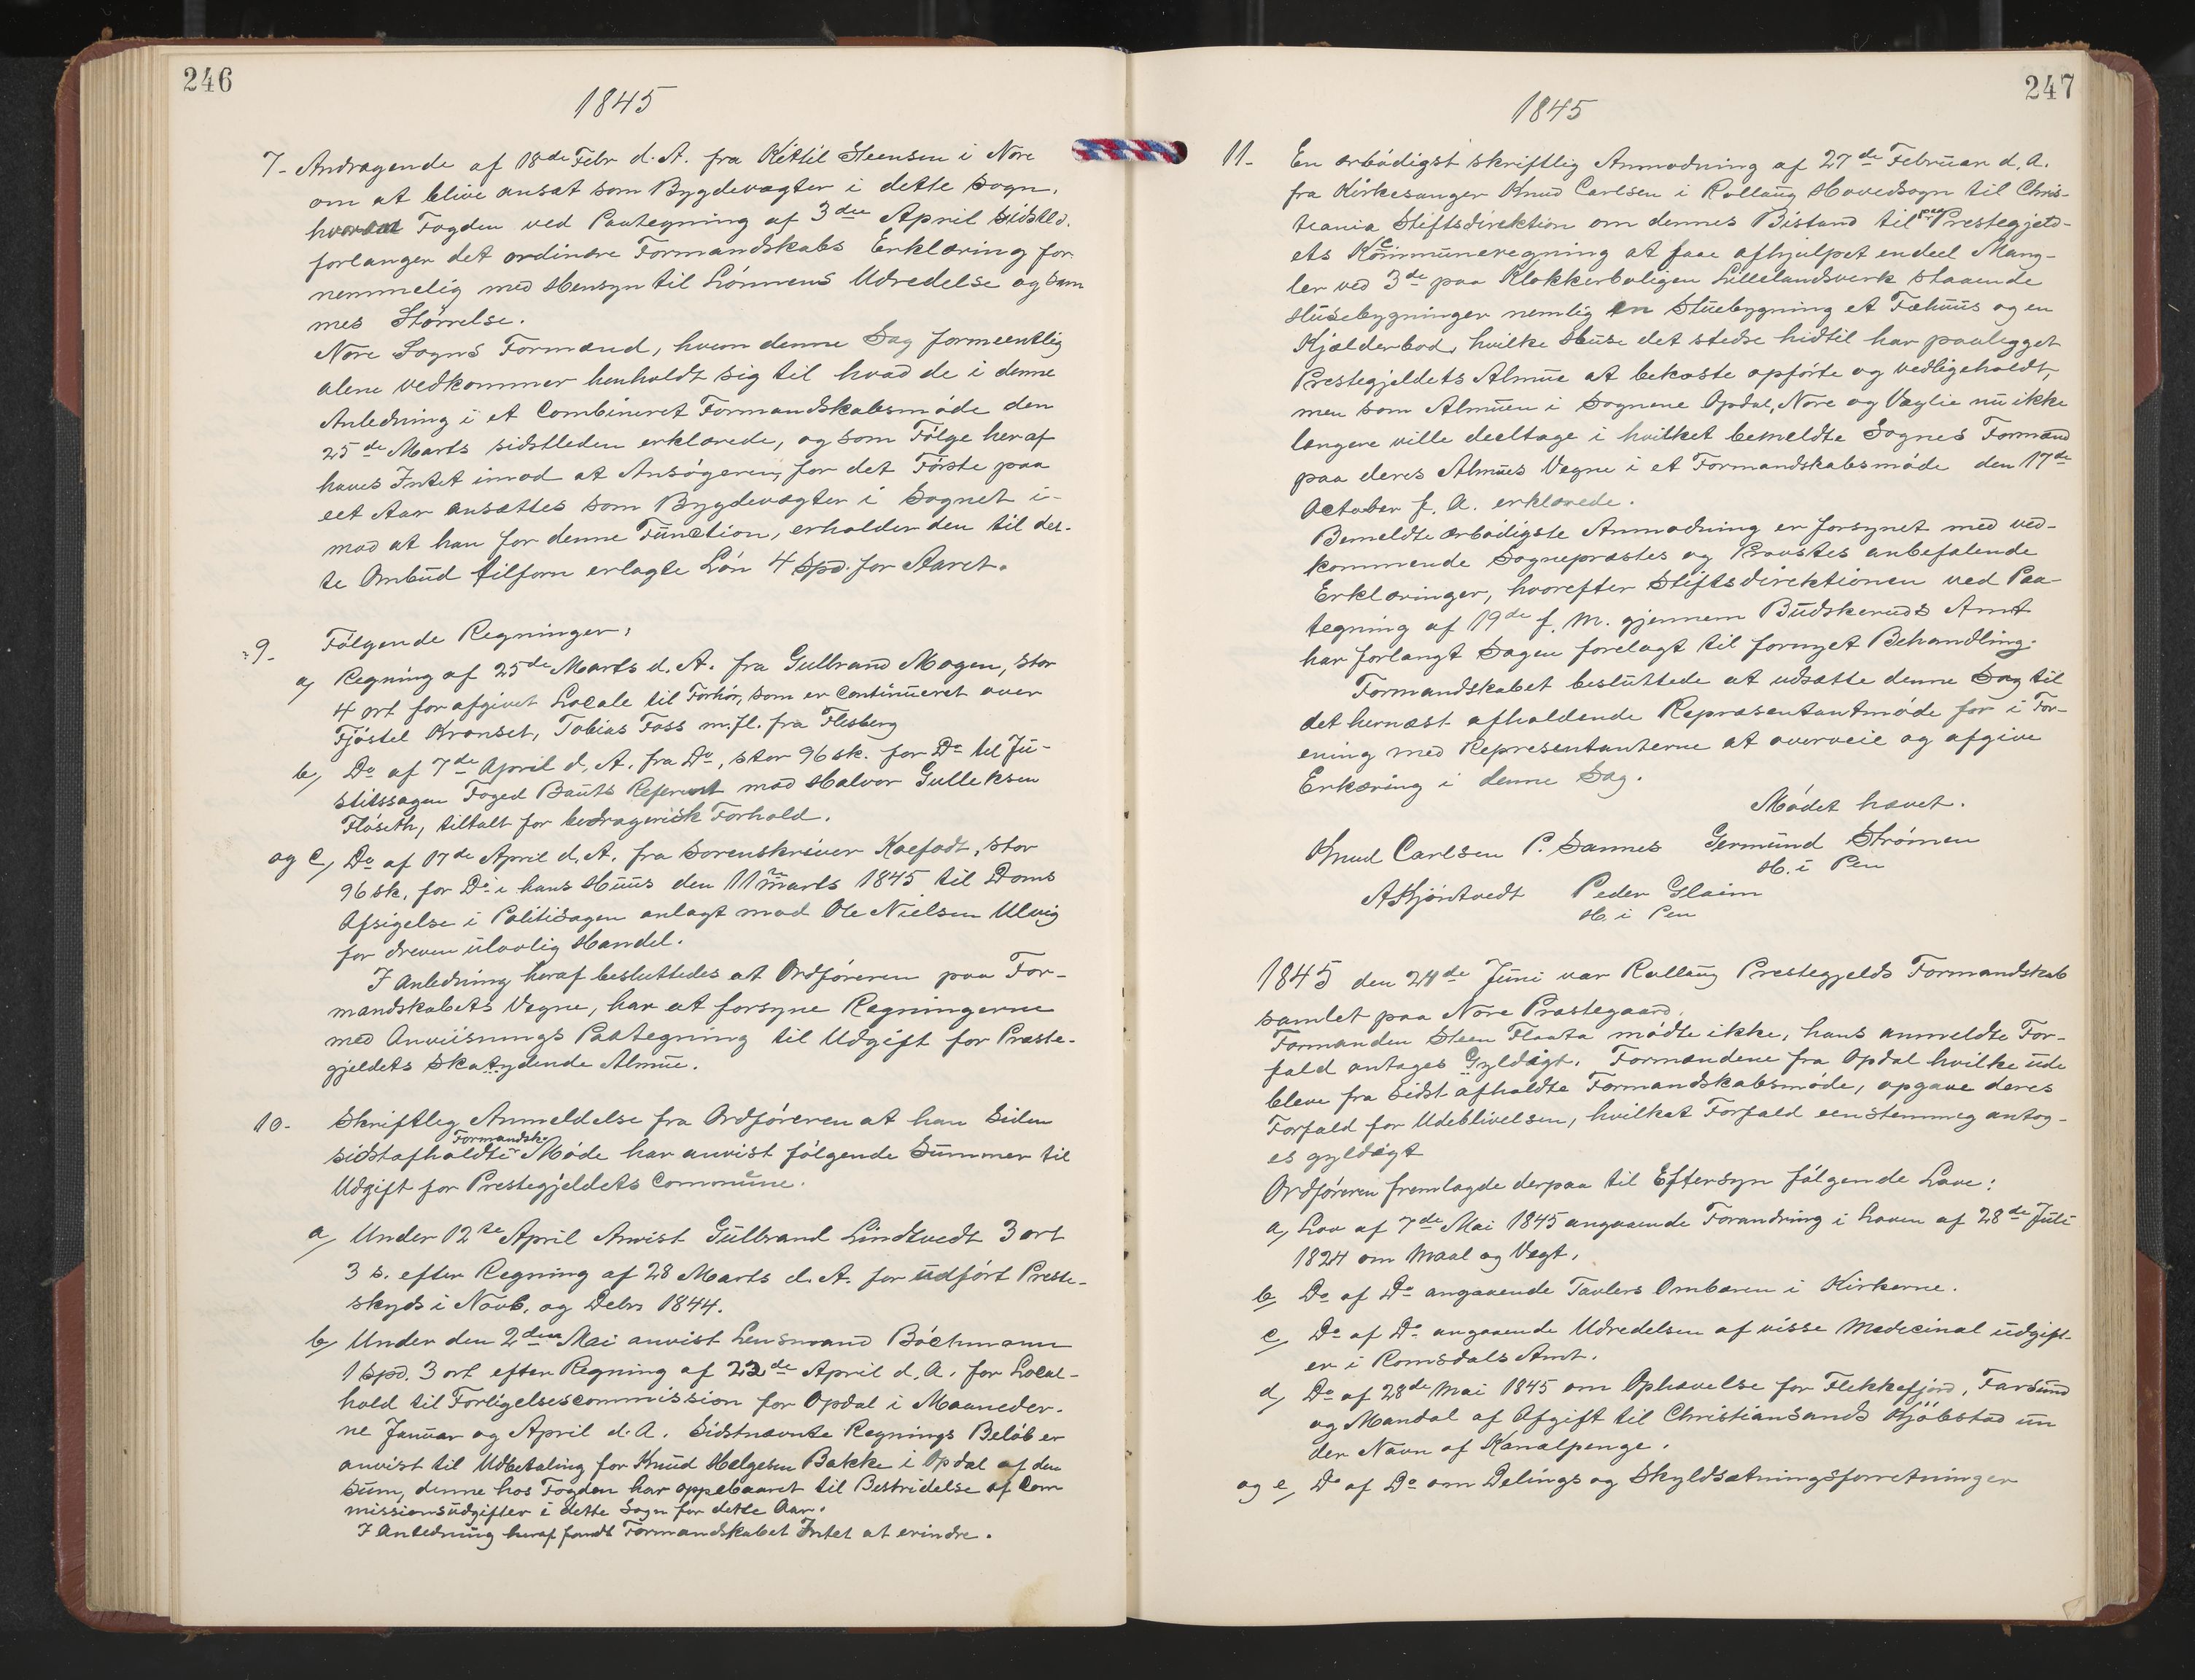 246
1845
7- Andragende af 18de Febr d. A. fra Kittil Steensen i Nore
om at blive ansat som Bygdevægter i dette Sogn,
hvorom Fogden ved Paategning af 3die April sidstl.
forlanger det ordinære Formandskabs Erklæring for
nemmelig med Hensyn til Lønnens Udredelse og sam
mes Størrelse.
Nore Sogns Formænd, hvem denne Sag formeentlig
alene vedkommer henholdt sig til hvad de i denne
Anledning i et Combineret Formandskabsmøde den
25de Marts sidstleden erklærede, og som Følge heraf
haves Intet imod at Ansøgeren, for det Første paa
eet Aar ansættes som Bygdevægter i Sognet i-
mod at han for denne Function, erholder den til det-
te Ombud tilforn erlagte Løn 4 Spd. for Aaret.
9- Følgende Regninger:
a) Regning af 25de Marts d. A. fra Gulbrand Mogen, stor
4 ort for afgivet Locale til Forhør, som er Continueret over
Fjøstel Kronset, Tobias Foss m.fl. fra Flesberg
b) Do af 7de April d. A. fra Do, stor 96 sk. for Do til Ju-
stitssagen Foged Bauts Reprent mod Halvor Gulleksen
Flåseth, tiltalt for bedragerisk Forhold.
og c) Do af 17de April d. A. fra Sorenskriver Koefodt, stor
96 sk. for Do i hans Huus den 11te Marts 1845 til Doms
Afsigelse i Politisagen anlagt mod Ole Nielsen Ulvig
for dreven ulovlig Handel.
I Anledning heraf besluttedes at Ordføreren paa For-
mandskabets Vegne, har at forsyne Regningerne
med Anviisnings Paategning til Udgift for Præste-
gjeldets Skatydende Almue.
10- Skriftlig Anmeldelse fra Ordføreren at han siden
Formandsk.
sidstafholdte Møde har anvist følgende Summer til
Udgift for Prestegjeldets Commune.
a) Under 12te April Anvist Gulbrand Lindtvedt 3 ort
3 s. efter Regning af 28 Marts d. A. for udført Preste-
skyds i Novb. og Debr 1844.
b) Under den 2den Mai anvist Lensmand Båchmann
1 Spd. 3 ort efter Regning af 22de April d. A. for Local-
hold til Forligelsescommission for Opdal i Maaneder-
ne Januar og April d. A. Sidstnævnte Regnings Beløb er
anvist til Udbetaling for Knud Helgesen Bakke i Opdal af den
Sum, denne hos Fogden har oppebaaret til Bestridelse af Com
missionsudgifter i dette Sogn for dette Aar.
I Anledning heraf fandt Formandskabet Intet at erindre.
247
1845
11- En ærbødigst skriftlig Anmodning af 27de Februar d. A.
fra Kirkesanger Knud Carlsen i Rollaug Hovedsogn til Chris-
tiania Stiftsdirektion om dennes Bistand til paa Prestegjeld-
ets Kommuneregning at faae afhjulpet endeel Mang-
ler ved 3de paa Klokkerboligen Lillelandsverk staaende
Husebygninger nemlig en Stuebygning et Fæhuus og en
Kjælderbod, hvilke Huse det stedse hidtil har paaligget
Prestegjeldets Almue at bekoste opførte og vedligeholdt,
men som Almuen i Sognene Opdal, Nore og Væglie nu ikke
længere ville deeltage i hvilket bemeldte Sognes Formænd
paa deres Almues Vegne i et Formandskabsmøde den 17de
October f. A. erklærede.
Bemeldte ærbødigste Anmodning er forsynet med ved-
kommende Sognepræstes og Provstes anbefalende
Erklæringer, hvorefter Stiftsdirektionen ved Paa-
tegning af 19de f. M. gjennem Budskeruds Amt
har forlangt Sagen forelagt til fornyet Behandling.
Formandskabet besluttede at udsætte denne Sag til
det hernæst afholdende Repræsentantmøde for i For-
ening med Representanterne at overveie og afgive
Erkæring i denne Sag.
Mødet hævet.
Knud Carlsen P. Sannes Germund Strømen
H. i Pen
A Kjøntvedt Peder Glaim
H. i Pen
1845 den 24de Juni var Rollaug Prestegjelds Formandskab
samlet paa Nore Præstegaard.
Formanden Steen Flaata mødte ikke, hans anmeldte For-
fald antages Gyldigt. Formændene fra Opdal hvilke ude
bleve fra Sidst afholdte Formandskabsmøde, opgave deres
Forfald for Udeblivelsen, hvilket Forfald eenstemmig antog-
es gyldigt
Ordføreren fremlagde derpaa til Eftersyn følgende Love:
a) Lov af 7de Mai 1845 angaaende Forandring i Loven af 28de Juli
1824 om Maal og Vegt.
b) Do af Do angaaende Tavlers Ombæren i Kirkerne.
c) Do af Do angaaende Udredelsen af visse Medecinal udgift-
er i Romsdals Amt.
d) Do af 28de Mai 1845 om Ophævelse for Flekkefjord, Farsund
og Mandal af Afgift til Christiansands Kjøbstad un
der Navn af Kanalpenge.
og e) Do af Do om Delings og Skyldsætningsforretninger